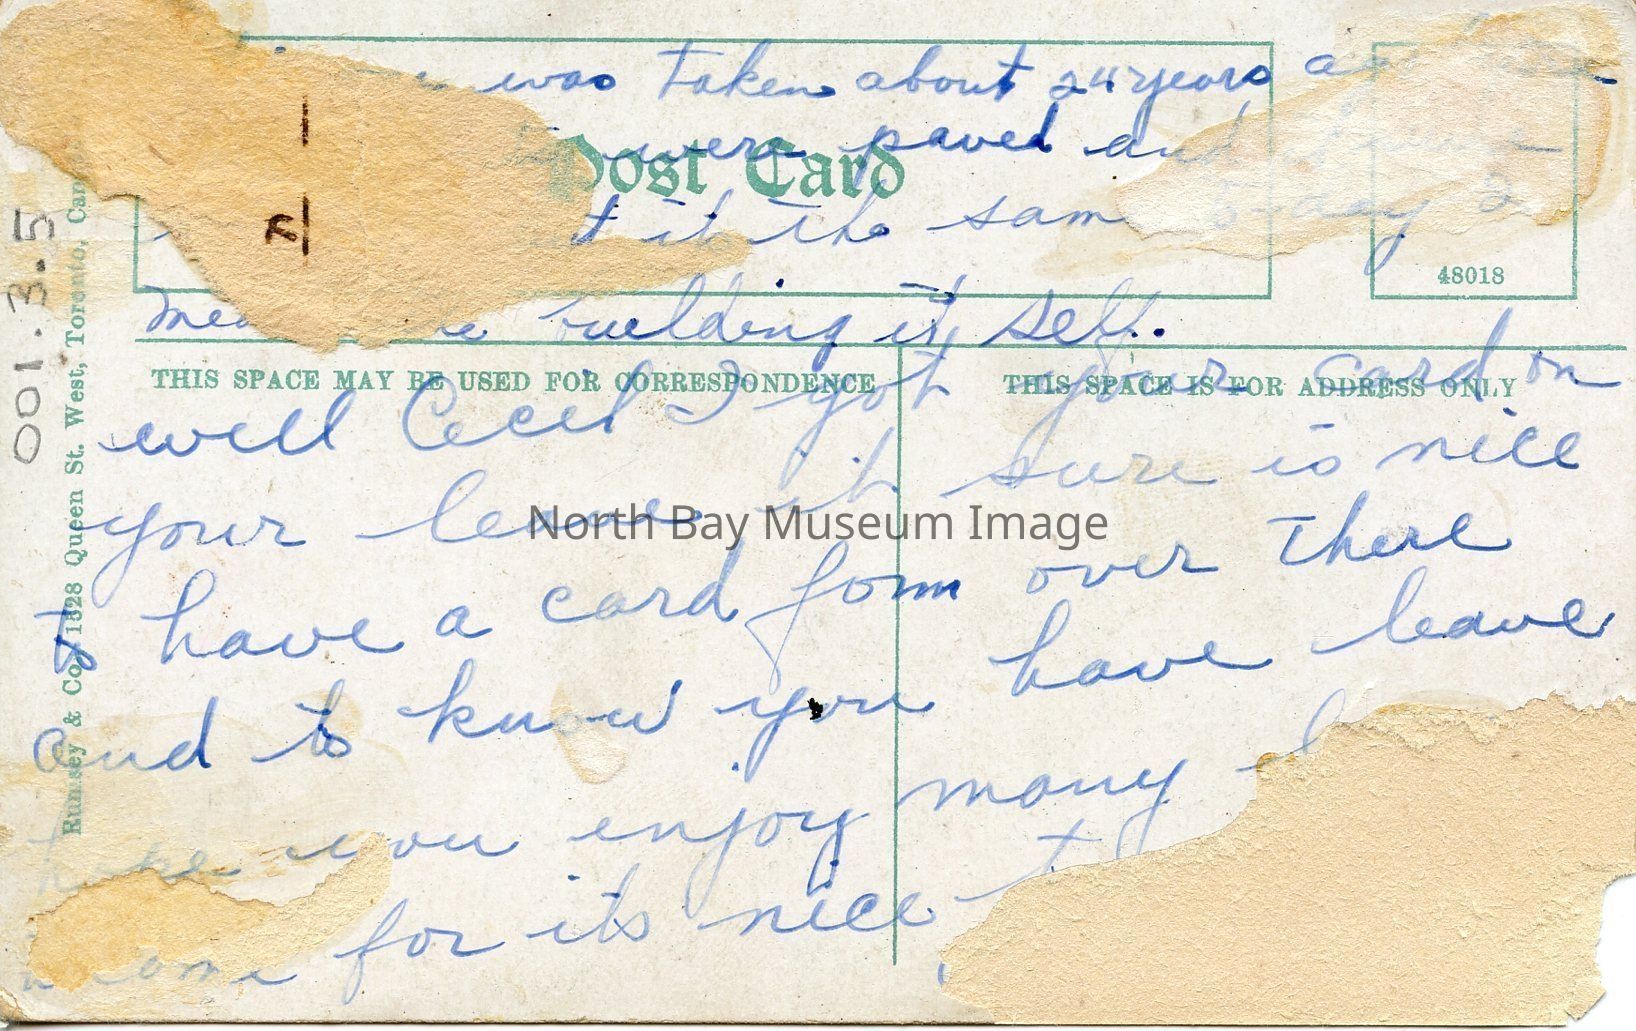 was taken about 24 years
were paved and
Post Card
it the sam
48018
building it self.
THIS SPACE MAY BE USED FOR CORRESPONDENCE
THIS SPACE IS FOR ADDRESS ONLY
well Cecil I got your card on
your leave it sure is nice
North Bay Museum Image
to have a card form over there
and to know you have leave
hope you enjoy many
home for its nice
Rumsey & Co. 1528 Queen St. West, Toronto, Can
001.3.5